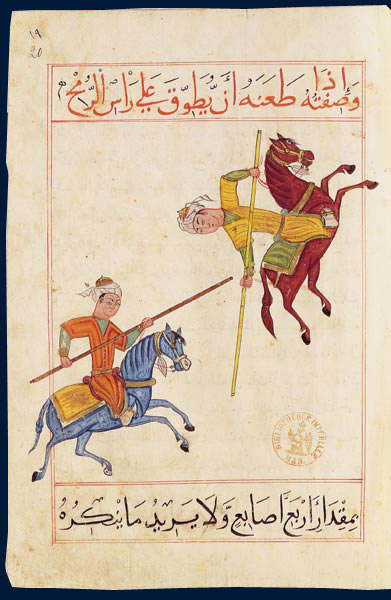 ١٩
20
وصفته إذا طعنه أن يطوق على راس الرمح
بمقدار أربع أصابع ولا يريد ما ينكره
BIBLIOTHEQUE IMPERIALE